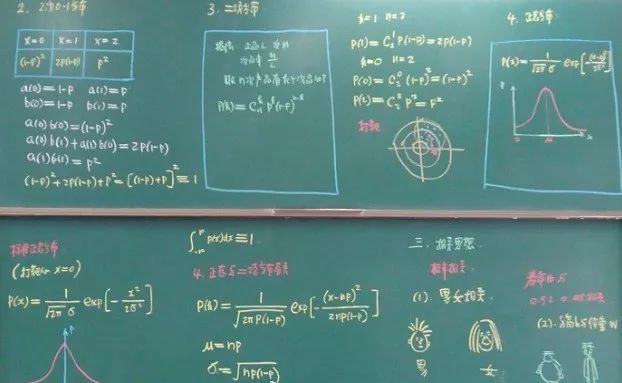 2. 2次0-1分布
x=0 x=1 x=2
(1-p)² 2p(1-p) p²
a(0)=1-p a(1)=p
b(0)=1-p b(1)=p
a(0)b(0)=(1-p)²
a(0)b(1)+a(1)b(0)=2p(1-p)
a(1)b(1)=p²
(1-p)²+2p(1-p)+p²=[(1-p)+p]²≡1
3. 二项分布
P(k)=Cₙᵏ pᵏ(1-p)ⁿ⁻ᵏ
k=1 n=2
P(1)=C₂¹P(1-p)=2p(1-p)
k=0 n=2
P(0)=C₂⁰(1-p)²=(1-p)²
P(2)=C₂²P²=P²
打靶
4. 正态分布
P(x)=1/√2π σ exp[-(x-μ)²/2σ²]
标准正态分布
(打靶 x=0)
P(x)=1/√2π σ exp[-x²/2σ²]
P
∫ p(x)dx≡1
4. 正态与二项分布关系
P(k)=1/√2πP(1-P) exp[-(x-np)²/2np(1-p)]
μ=np
σ=√np(1-p)
三. 相关思想
概率相关
(1). 男女相关
男 女
(2).